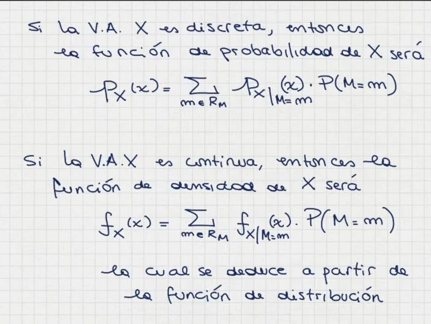 Si la V.A. X es discreta, entonces
la función de probabilidad de X será
p_X(x) = ∑_{m∈R_M} p_{X|M=m}(x) · P(M=m)
Si la V.A. X es continua, entonces la
función de densidad de X será
f_X(x) = ∑_{m∈R_M} f_{X|M=m}(x) · P(M=m)
la cual se deduce a partir de
la función de distribución